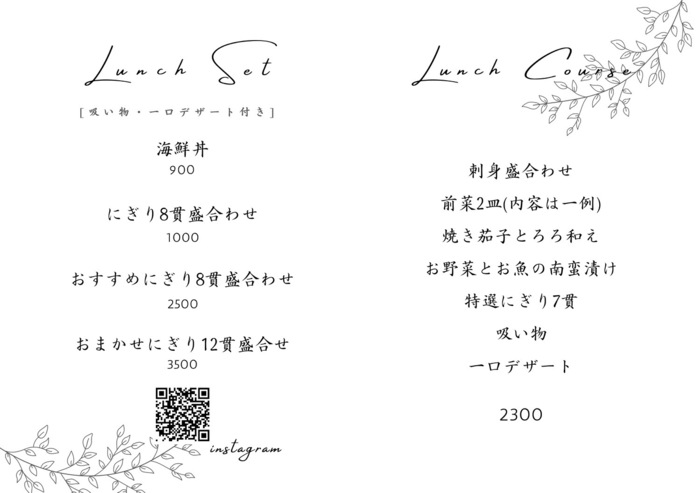 Lunch Set
[吸い物・一口デザート付き]
海鮮丼
900
にぎり8貫盛合わせ
1000
おすすめにぎり8貫盛合わせ
2500
おまかせにぎり12貫盛合せ
3500
instagram
Lunch Course
刺身盛合わせ
前菜2皿(内容は一例)
焼き茄子とろろ和え
お野菜とお魚の南蛮漬け
特選にぎり7貫
吸い物
一口デザート
2300